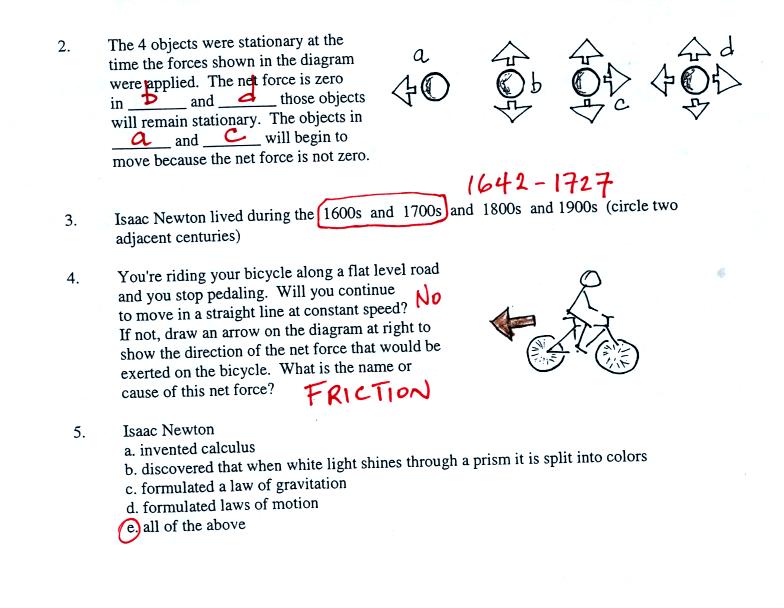 2. The 4 objects were stationary at the
time the forces shown in the diagram
were applied. The net force is zero
in b and d those objects
will remain stationary. The objects in
a and c will begin to
move because the net force is not zero.
a
b
c
d
1642-1727
3. Isaac Newton lived during the 1600s and 1700s and 1800s and 1900s (circle two
adjacent centuries)
4. You're riding your bicycle along a flat level road
and you stop pedaling. Will you continue
to move in a straight line at constant speed? No
If not, draw an arrow on the diagram at right to
show the direction of the net force that would be
exerted on the bicycle. What is the name or
cause of this net force? FRICTION
5. Isaac Newton
a. invented calculus
b. discovered that when white light shines through a prism it is split into colors
c. formulated a law of gravitation
d. formulated laws of motion
e. all of the above